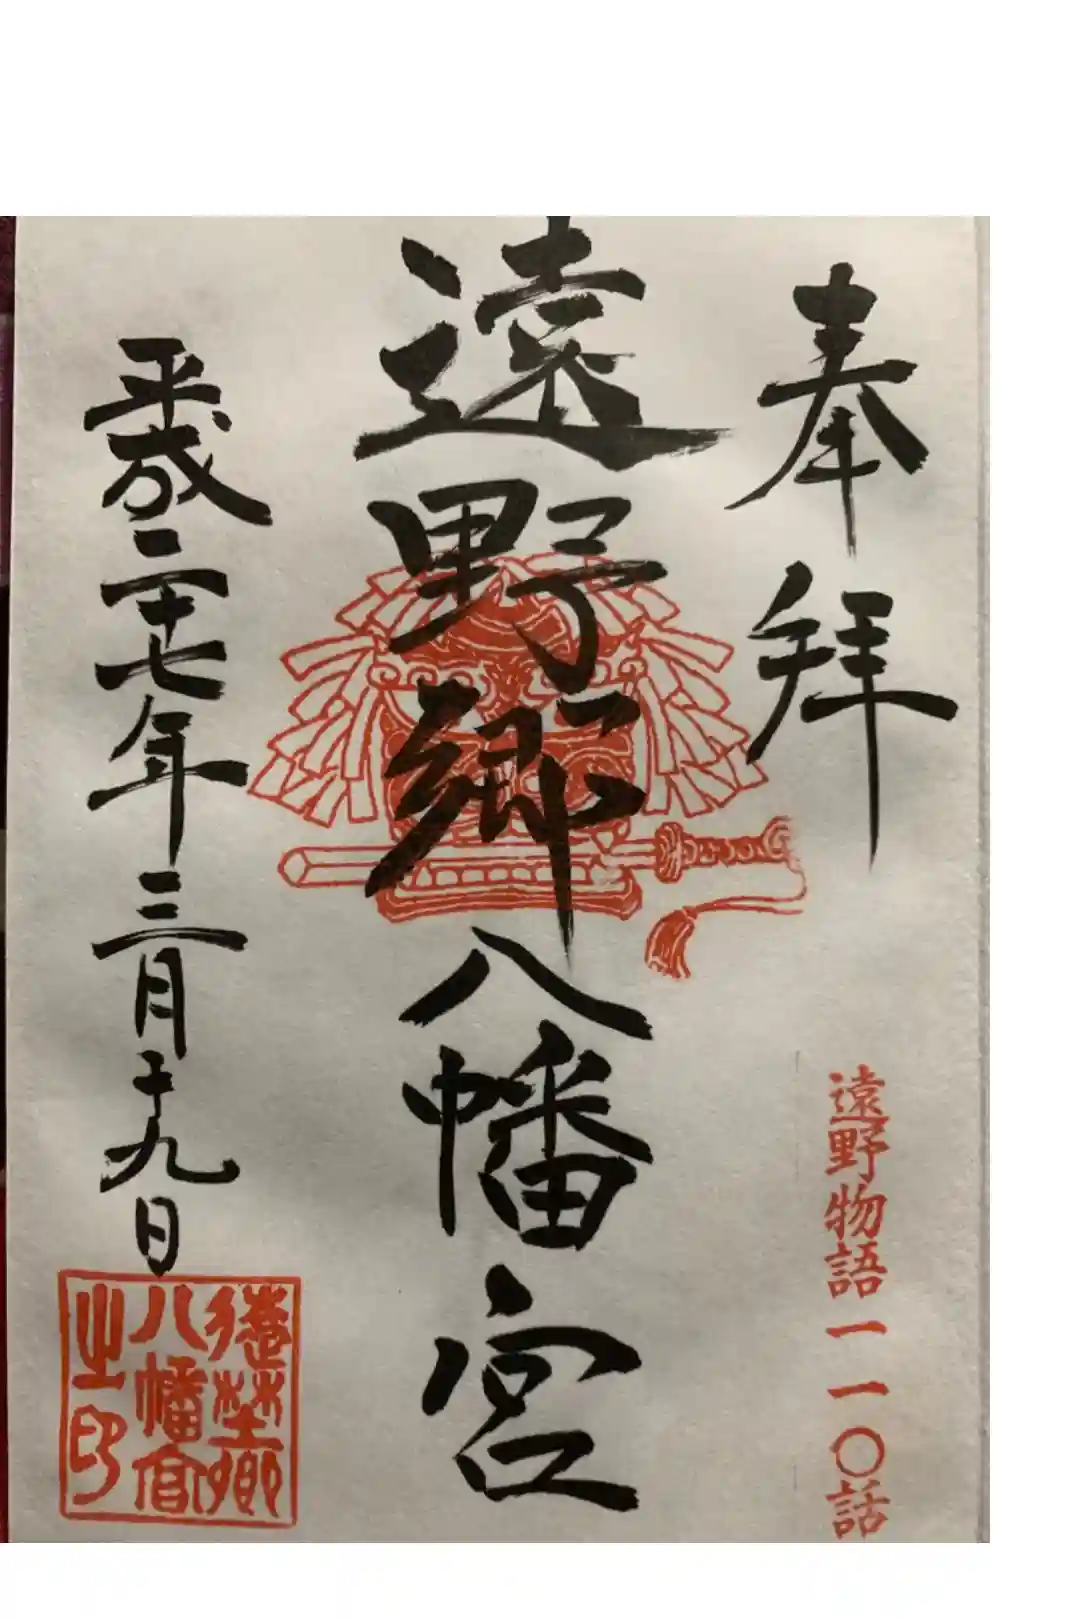 奉拝
遠野物語一一〇話
遠野郷八幡宮
平成二十七年三月十九日
遠野郷
八幡宮
之印